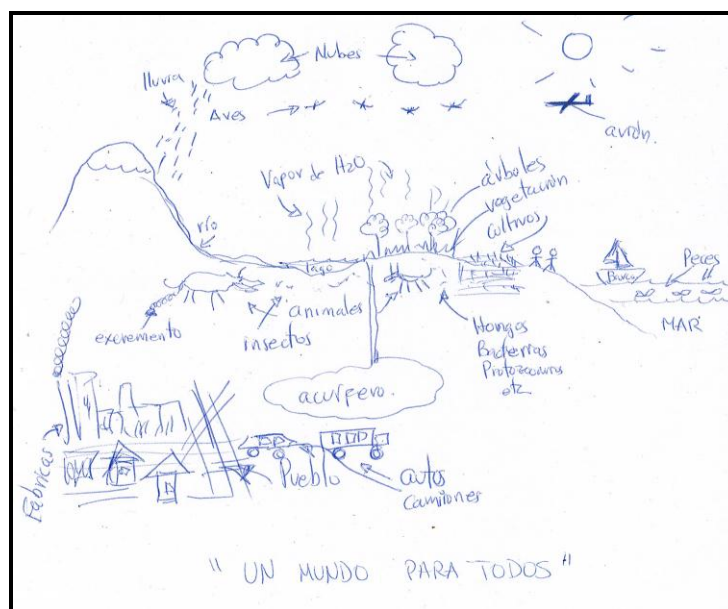 Nubes
lluvia
Aves
avión.
Vapor de H2O
árboles
vegetación
cultivos
río
lago
Barco
Peces
MAR
animales
insectos
excremento
Hongos
Bacterias
Protozoarios
etc
acuífero.
Fábricas
Pueblo
autos
Camiones
" UN MUNDO PARA TODOS "